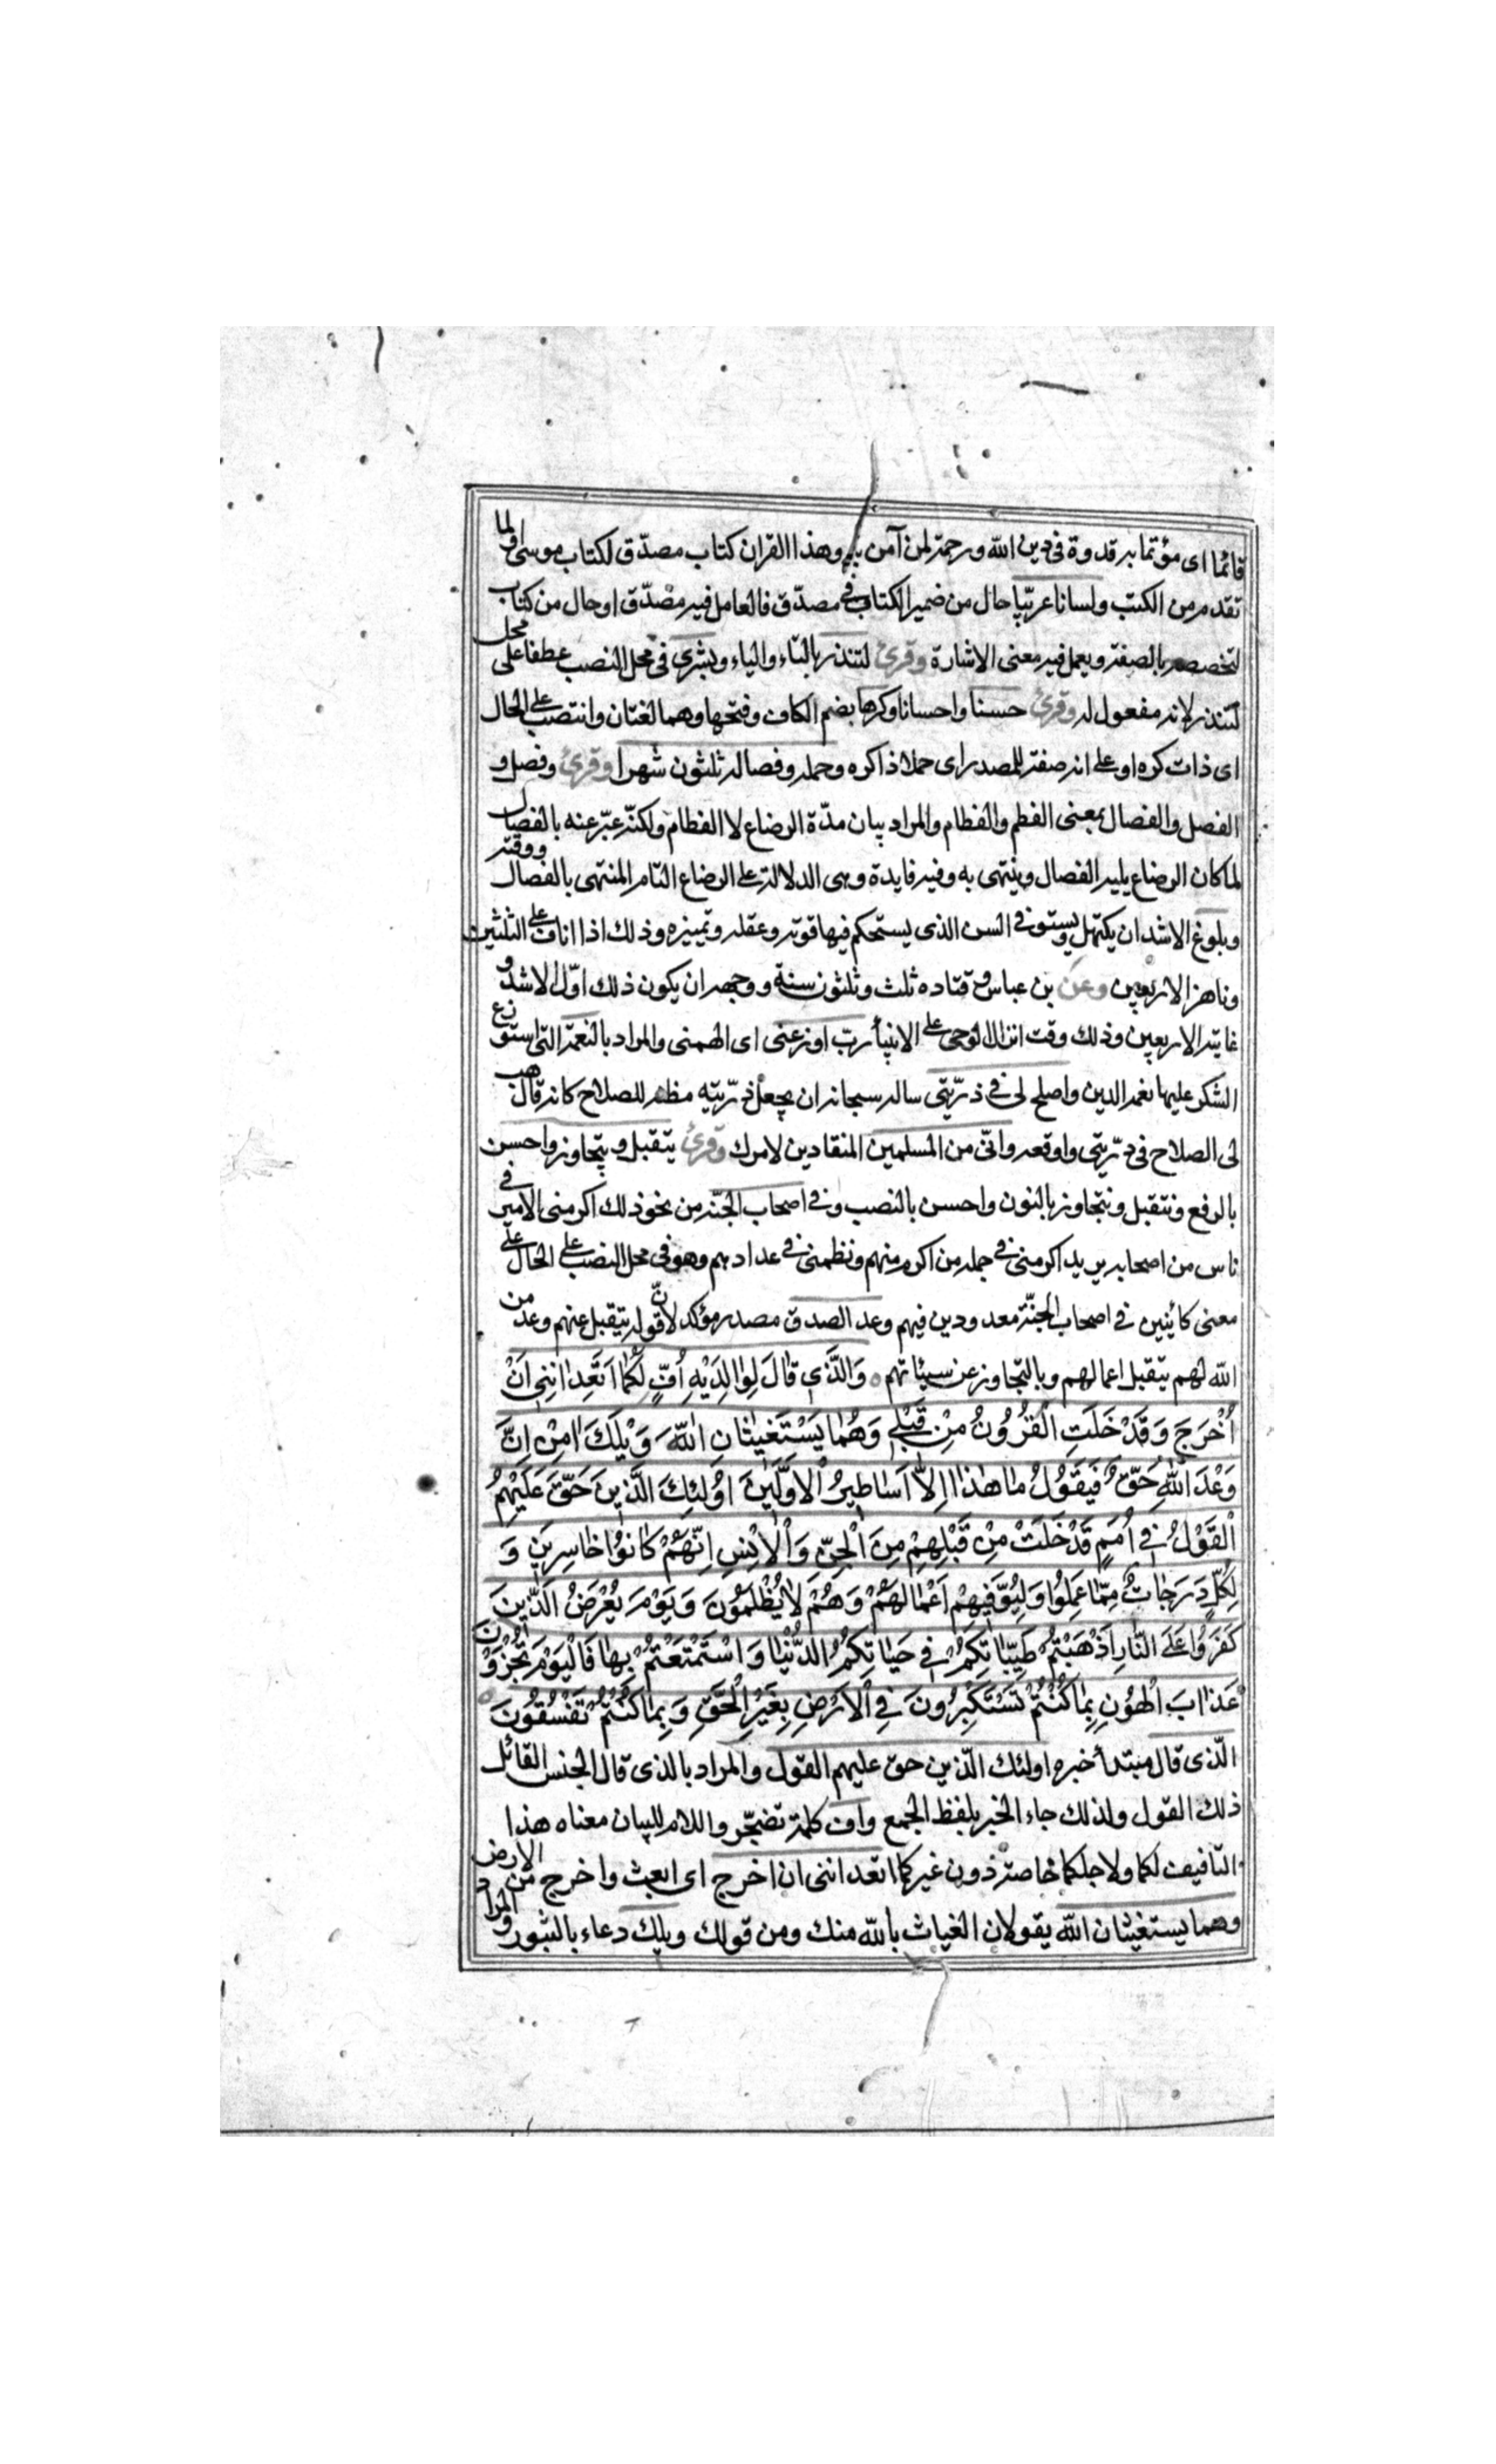 قائما اى مؤتما به قدوة فى دين الله ورحمة لمن آمن به وهذا القران كتاب مصدّق لكتاب موسى او لما
تقدمه من الكتب ولسانا عربيّا حال من ضمير الكتاب فى مصدّق فالعامل فيه مصدّق او حال من كتاب
لتخصصه بالصفة ويعمل فيه معنى الاشارة وقرئ لتنذر بالتاء والياء وبشرى فى محل النصب عطفا على محل
لتنذر لانه مفعول له وقرئ حسنا واحسانا وكرها بضم الكاف وفتحها وهما لغتان وانتصب على الحال
اى ذات كره او على انه صفة للمصدر اى حملا ذا كره وحمله وفصاله ثلثون شهرا وقرئ وفصله و
الفصل والفصال بمعنى الفطم والفطام والمراد بيان مدّة الرضاع لا الفطام ولكنّه عبّر عنه بالفصال
لما كان الرضاع يليه الفصال وينتهى به وفيه فايدة وهى الدلالة على الرضاع التام المنتهى بالفصال ووقته
وبلوغ الاشد ان يكتهل ويستوفى السن الذى يستحكم فيها قوته وعقله وتمييزه وذلك اذا اناف على الثلثين
وناهز الاربعين وعن بن عباس و قتاده ثلث وثلثون سنة ووجهه ان يكون ذلك اوّل الاشد و
غايته الاربعين وذلك وقت انزال الوحى على الانبيأ رب اوزعنى اى الهمنى والمراد بالنعمة التى استوزع
الشكر عليها نعمة الدين واصلح لى فى ذرّيّتى ساله سبحانه ان يجعل ذرّيته مظنه للصلاح كانه قال هب
لى الصلاح فى ذرّيتى واوقعه وانّى من المسلمين المنقادين لامرك وقرئ يتقبل ويتجاوز واحسن
بالرفع ونتقبل ونتجاوز بالنون واحسن بالنصب وفى اصحاب الجنّة من نحو ذلك اكرمنى الامير فى
ناس من اصحابه يريد اكرمنى فى جملة من اكرم منهم ونظمنى فى عدادهم وهو فى محل النصب على الحال على
معنى كائنين فى اصحاب الجنّة معدودين فيهم وعد الصدق مصدر مؤكد لانّ قوله يتقبل عنهم وعد من
الله لهم يتقبل اعمالهم وبالتجاوز عن سيئاتهم ٥ وَالَّذِي قَالَ لِوَالِدَيْهِ أُفٍّ لَكُمَا اَتَعِدَانِنِي اَنْ
أُخْرَجَ وَقَدْ خَلَتِ الْقُرُونُ مِنْ قَبْلِي وَهُمَا يَسْتَغِيثَانِ اللّٰهَ وَيْلَكَ اٰمِنْ اِنَّ
وَعْدَ اللّٰهِ حَقٌّ فَيَقُولُ مَا هٰذَا اِلاّٰ اَسَاطِيرُ الْاَوَّلِينَ اُولٰئِكَ الَّذِينَ حَقَّ عَلَيْهِمُ
الْقَوْلُ فِي اُمَمٍ قَدْ خَلَتْ مِنْ قَبْلِهِمْ مِنَ الْجِنِّ وَالْاِنْسِ اِنَّهُمْ كَانُوا خَاسِرِينَ وَ
لِكُلٍّ دَرَجَاتٌ مِمَّا عَمِلُوا وَلِيُوَفِّيَهُمْ اَعْمَالَهُمْ وَهُمْ لَا يُظْلَمُونَ وَيَوْمَ يُعْرَضُ الَّذِينَ
كَفَرُوا عَلَى النَّارِ اَذْهَبْتُمْ طَيِّبَاتِكُمْ فِي حَيَاتِكُمُ الدُّنْيَا وَاسْتَمْتَعْتُمْ بِهَا فَالْيَوْمَ تُجْزَوْنَ
عَذَابَ الْهُونِ بِمَا كُنْتُمْ تَسْتَكْبِرُونَ فِي الْاَرْضِ بِغَيْرِ الْحَقِّ وَبِمَا كُنْتُمْ تَفْسُقُونَ ٥
الّذى قال مبتدأ خبره اولئك الّذين حق عليهم القول والمراد بالذى قال الجنس القائل
ذلك القول ولذلك جاء الخبر بلفظ الجمع واف كلمة تضجّر واللام للبيان معناه هذا
التافيف لكما ولاجلكما خاصّة دون غيركما اتعداننى ان اخرج اى ابعث واخرج من الارض
وهما يستغيثان الله يقولان الغياث بالله منك ومن قولك ويلك دعاء بالثبور والمراد